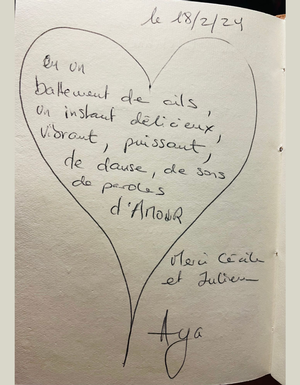 le 18/2/24
en un
battement de cils,
un instant délicieux,
vibrant, puissant,
de danse, de sons
de paroles
d'AMOUR
Merci Cécile
et Julien
Aya